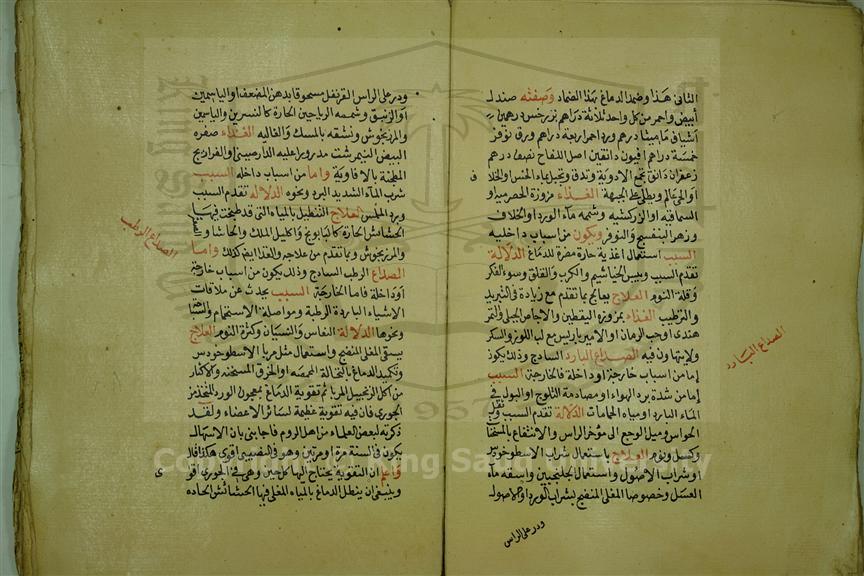 الثانى هذا وضمد الدماغ بهذا الضماد وصفته صندل
أبيض واحمر من كل واحد ثلاثة دراهم بزر خس درهمين
أشياف ماميثا درهم ورد احمر اربعة دراهم ورق نوفر
خمسة دراهم افيون دانقين اصل اللفاح نصف درهم
زعفران دانق تجمع الادوية وتدق وتجبل بماء الخس والخلا
أو الحى عالم ويطلى على الجبهة الغذاء مزورة الحصرمية او
السماقية او الزرشكيه وشمه مآء الورد والخلاف
وزهر البنفسج والنوفر ويكون من اسباب داخلية
السبب استعمال اغذية حارة مضرة للدماغ الدلالة
تقدم السبب ويبس الخياشيم والكرب والقلق وسوء الفكر
وقلة النوم العلاج يعالج بما تقدم مع زيادة فى التبريد
والترطيب الغذاء بمزورة اليقطين والاجاص الجبلى والتمر
هندى اوحب الرمان او الاميرباريس مع لب اللوز والسكر
ولا يتهاون فيه الصداع البارد الساذج وذلك يكون
إما من اسباب خارجة او داخلة فالخارجة السبب
إما من شدة برد الهواء او مصادمة الثلوج او البول فى
الماء البارد او مياه الحمامات الدلالة تقدم السبب وثقل
الحواس وميل الوجع الى مؤخر الراس والانتفاع بالمسخنات
وكسل ونوم العلاج باستعمال شراب الاسطوخودس
او شراب الاصول واستعمال الجلنجبين واسقه مآء
العسل وخصوصا المغلى المنضج بشراب الورد او الاصول
الصداع البارد
وذر على الراس
وذر على الراس القرنفل مسحوقا بدهن المضعف او الياسمين
أو الزنبق وشممه الرياحين الحارة كالنسرين والياسمين
والمرزنجوش ونشقه بالمسك والغاليه الغذاء صفرة
البيض النيمرشت مذرورا عليه الدارصينى والفراريج
المطجنة بالافاوية واما من اسباب داخله السبب
شرب المآء الشديد البرد ونحوه الدلالة تقدم السبب
وبرد الملمس العلاج التنطيل بالمياه التى قد طبخت فيها
الحشائش الحارة كالبابونج واكليل الملك والحاشا
والمرزنجوش وبما تقدم من علاجه والغذا ايضا كذلك واما
الصداع الرطب الساذج وذلك يكون من اسباب خارجة
أو داخلة فاما الخارجة السبب يحدث عن ملاقات
الاشياء الباردة الرطبة ومواصلة الاستحمام
ونحوها الدلالة النعاس والنسيان وكثرة النوم العلاج
يسقى المغلى المنضج واستعمال مثل مربا الاسطوخودس
وتكميد الدماغ بالنخالة المحمصه او الخرق المسخنه والاكثار
من اكل الزنجبيل المربا ثم تقوية الدماغ بمعجون الورد المتخذ من
الجورى فان فيه تقوية عظيمة لسائر الاعضاء ولقد
ذكرته لبعض العلماء من اهل الروم فاجابنى بان الاسهال
يكون فى السنة مرة او مرتين وهو فى النصيبى اقوى هكذا قال
واعلم ان التقوية يحتاج اليها كل حين وهى فى الجورى اقوى
وينبغى ان ينطل الدماغ بالمياه المغلى فيها الحشائش الحاده
الصداع الرطب